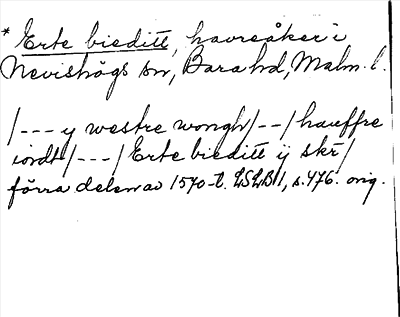 * Erte bieditt, havreåker i
Nevishögs sn, Bara hd, Malm. l.
/--- y westre wongh/--/ hauffre
iordt/---/ Erte bieditt ij skr/
förra delen av 1570-t. LSLB 1, s. 476. orig.